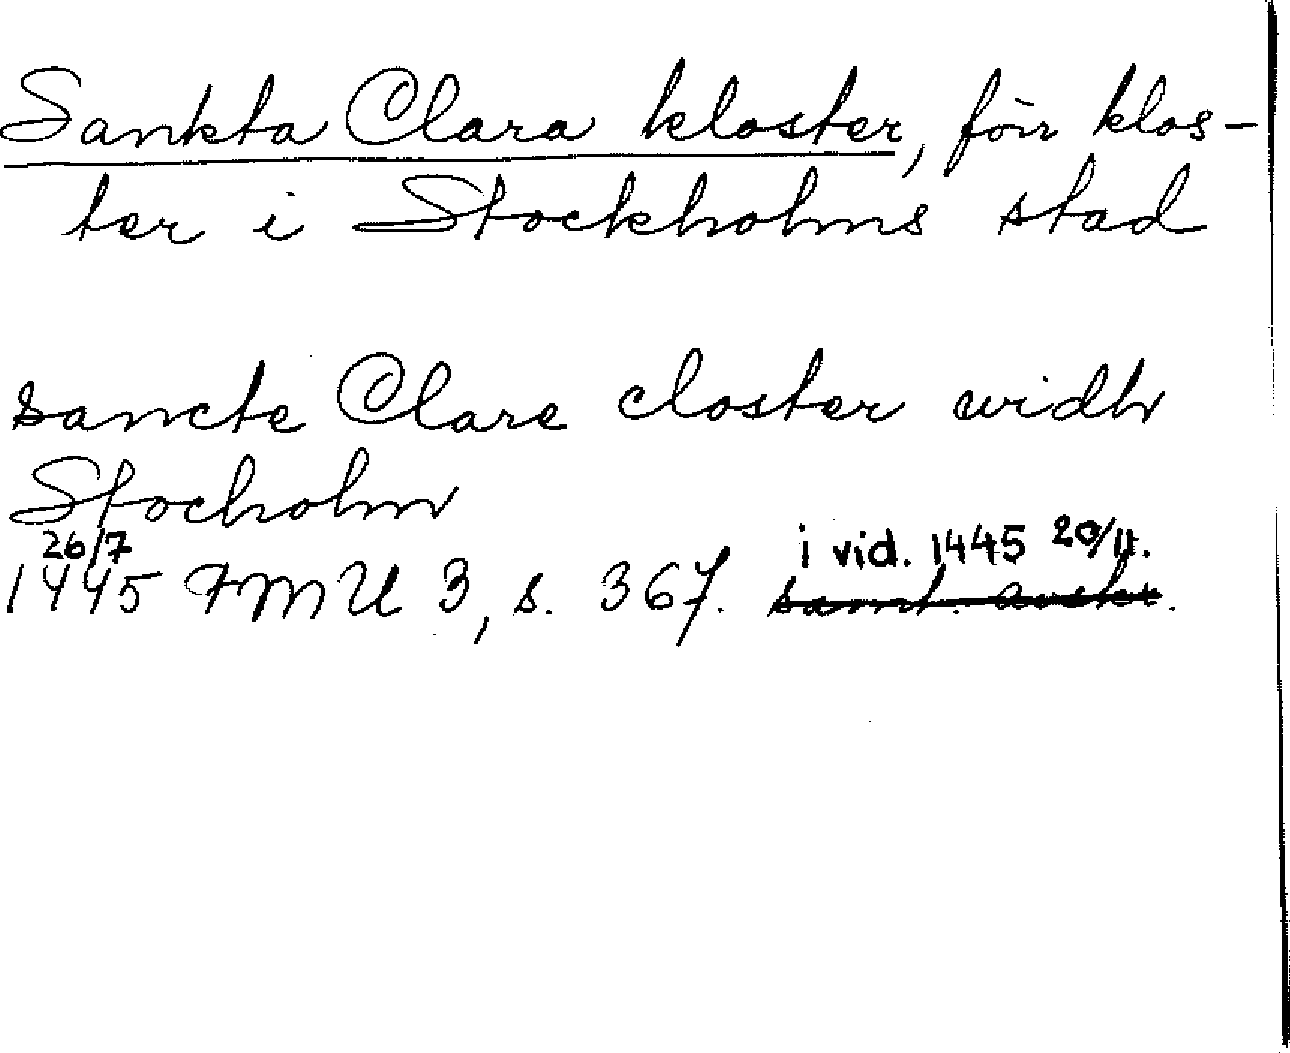 Sankta Clara kloster, förr klos-
ter i Stockholms stad
sancte Clare closter widh
Stocholm
26/7 i vid. 1445 20/11.
1445 FMU 3, s. 367. samt. avskr.